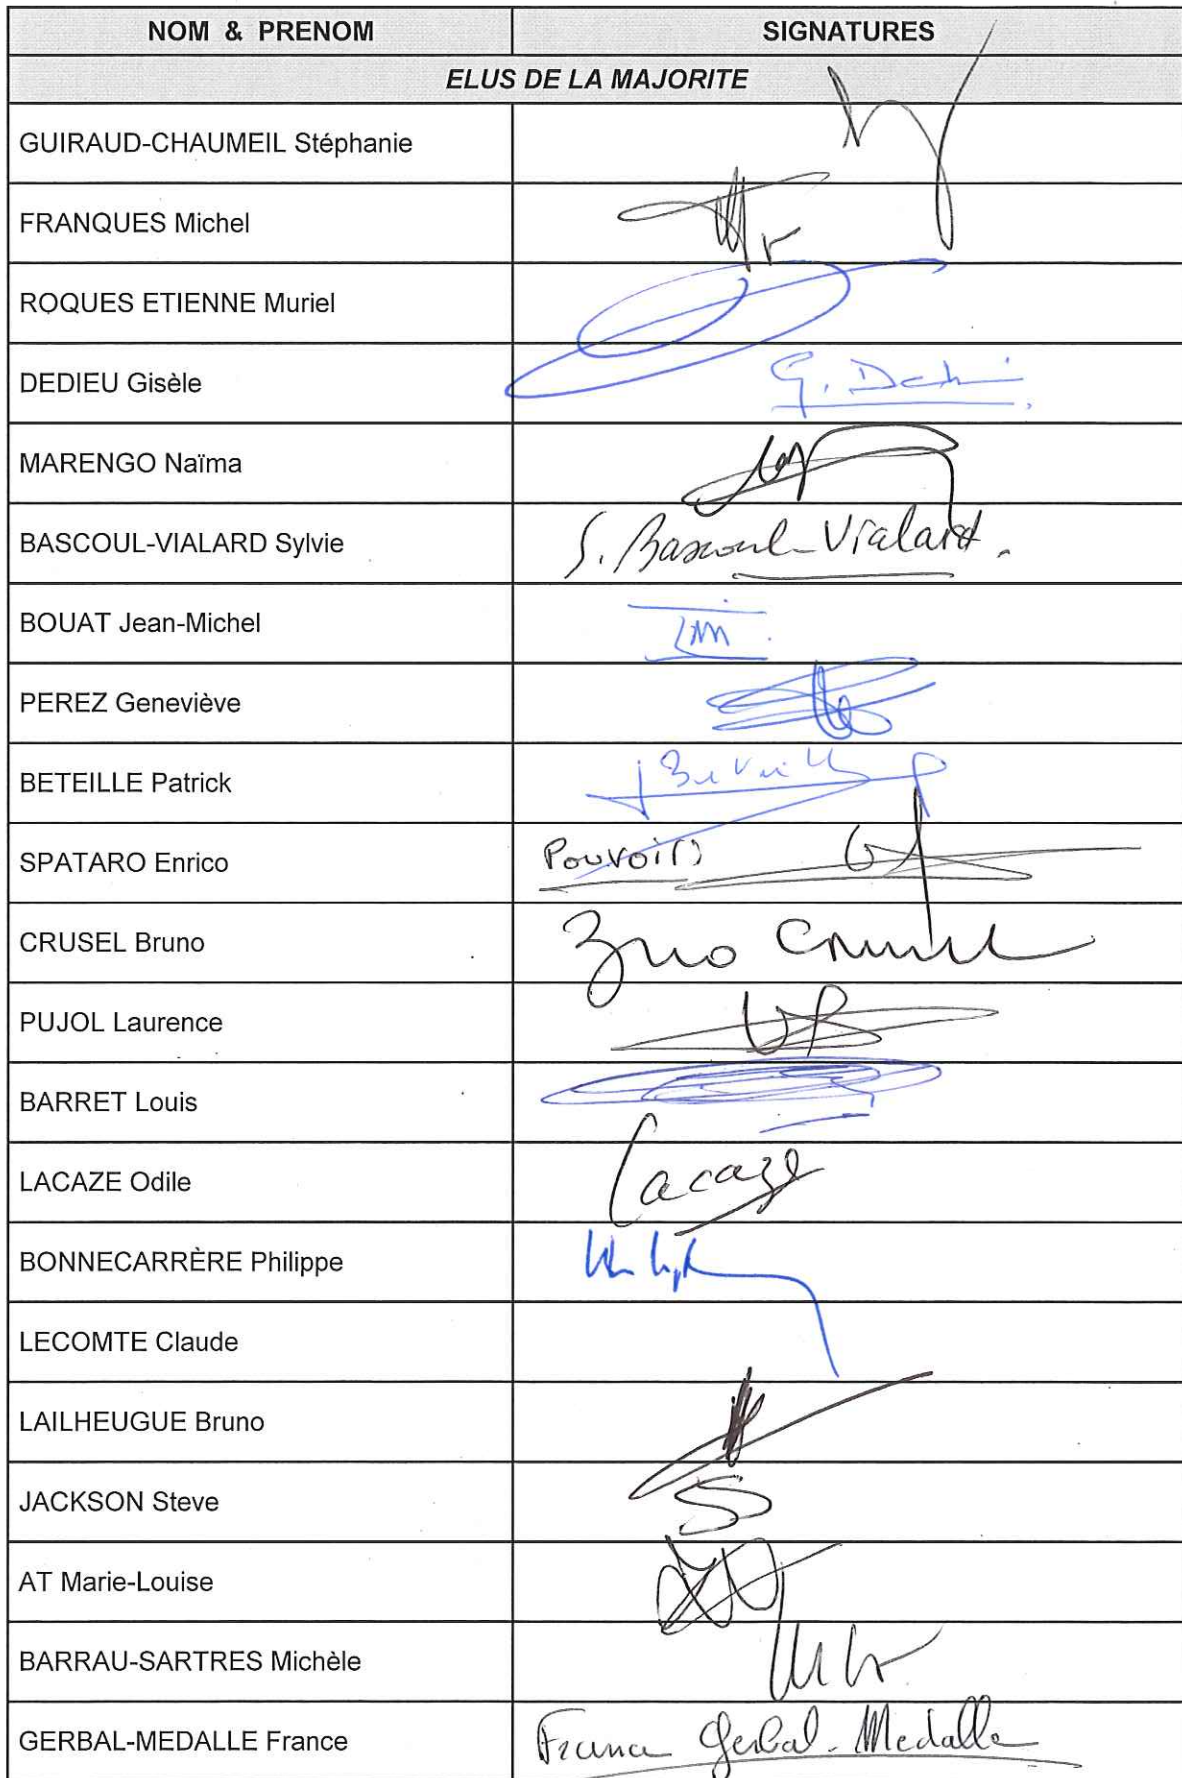 NOM & PRENOM SIGNATURES
ELUS DE LA MAJORITE
GUIRAUD-CHAUMEIL Stéphanie
FRANQUES Michel
ROQUES ETIENNE Muriel
DEDIEU Gisèle
MARENGO Naïma
BASCOUL-VIALARD Sylvie S. Bascoul-Vialard.
BOUAT Jean-Michel
PEREZ Geneviève
BETEILLE Patrick
SPATARO Enrico Pouvoir
CRUSEL Bruno Bruno Crusel
PUJOL Laurence
BARRET Louis
LACAZE Odile Lacaze
BONNECARRÈRE Philippe
LECOMTE Claude
LAILHEUGUE Bruno
JACKSON Steve
AT Marie-Louise
BARRAU-SARTRES Michèle
GERBAL-MEDALLE France France Gerbal-Medalle